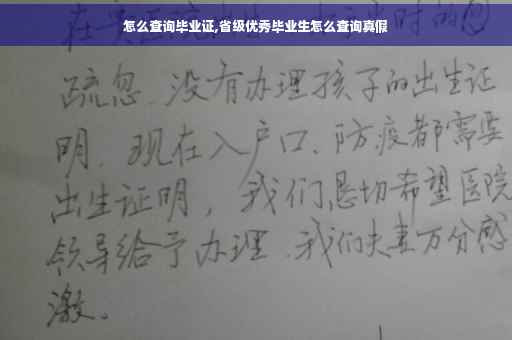 怎么查询毕业证,省级优秀毕业生怎么查询真假
疏忽.没有办理孩子的出生证
明.现在入户口、防疫都需要
出生证明，我们恳切希望医院
领导给予办理.我们夫妻万分感
激。